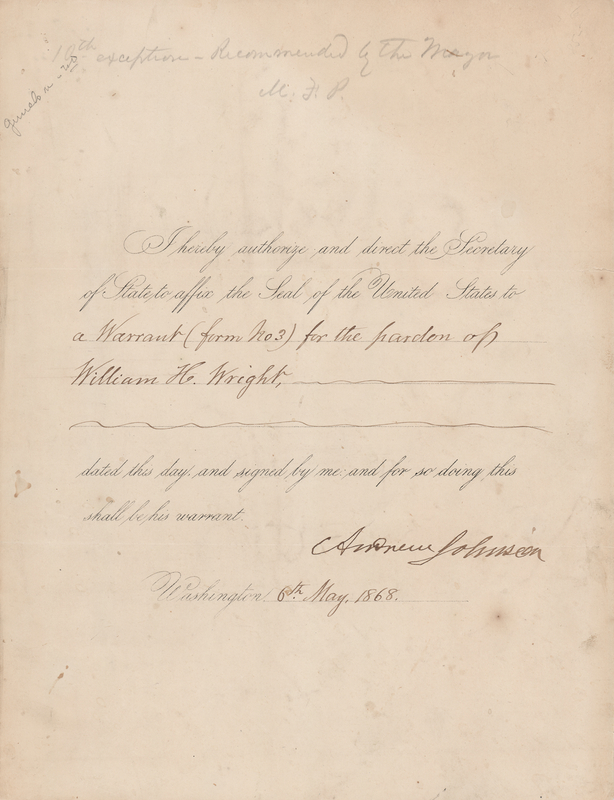 10th exception - Recommended by the Mayor
M. F. P.
I hereby authorize and direct the Secretary
of State to affix the Seal of the United States to
a Warrant (form No 3) for the pardon of
William H. Wright,
dated this day, and signed by me: and for so doing this
shall be his warrant.
Andrew Johnson
Washington, 6th May, 1868.